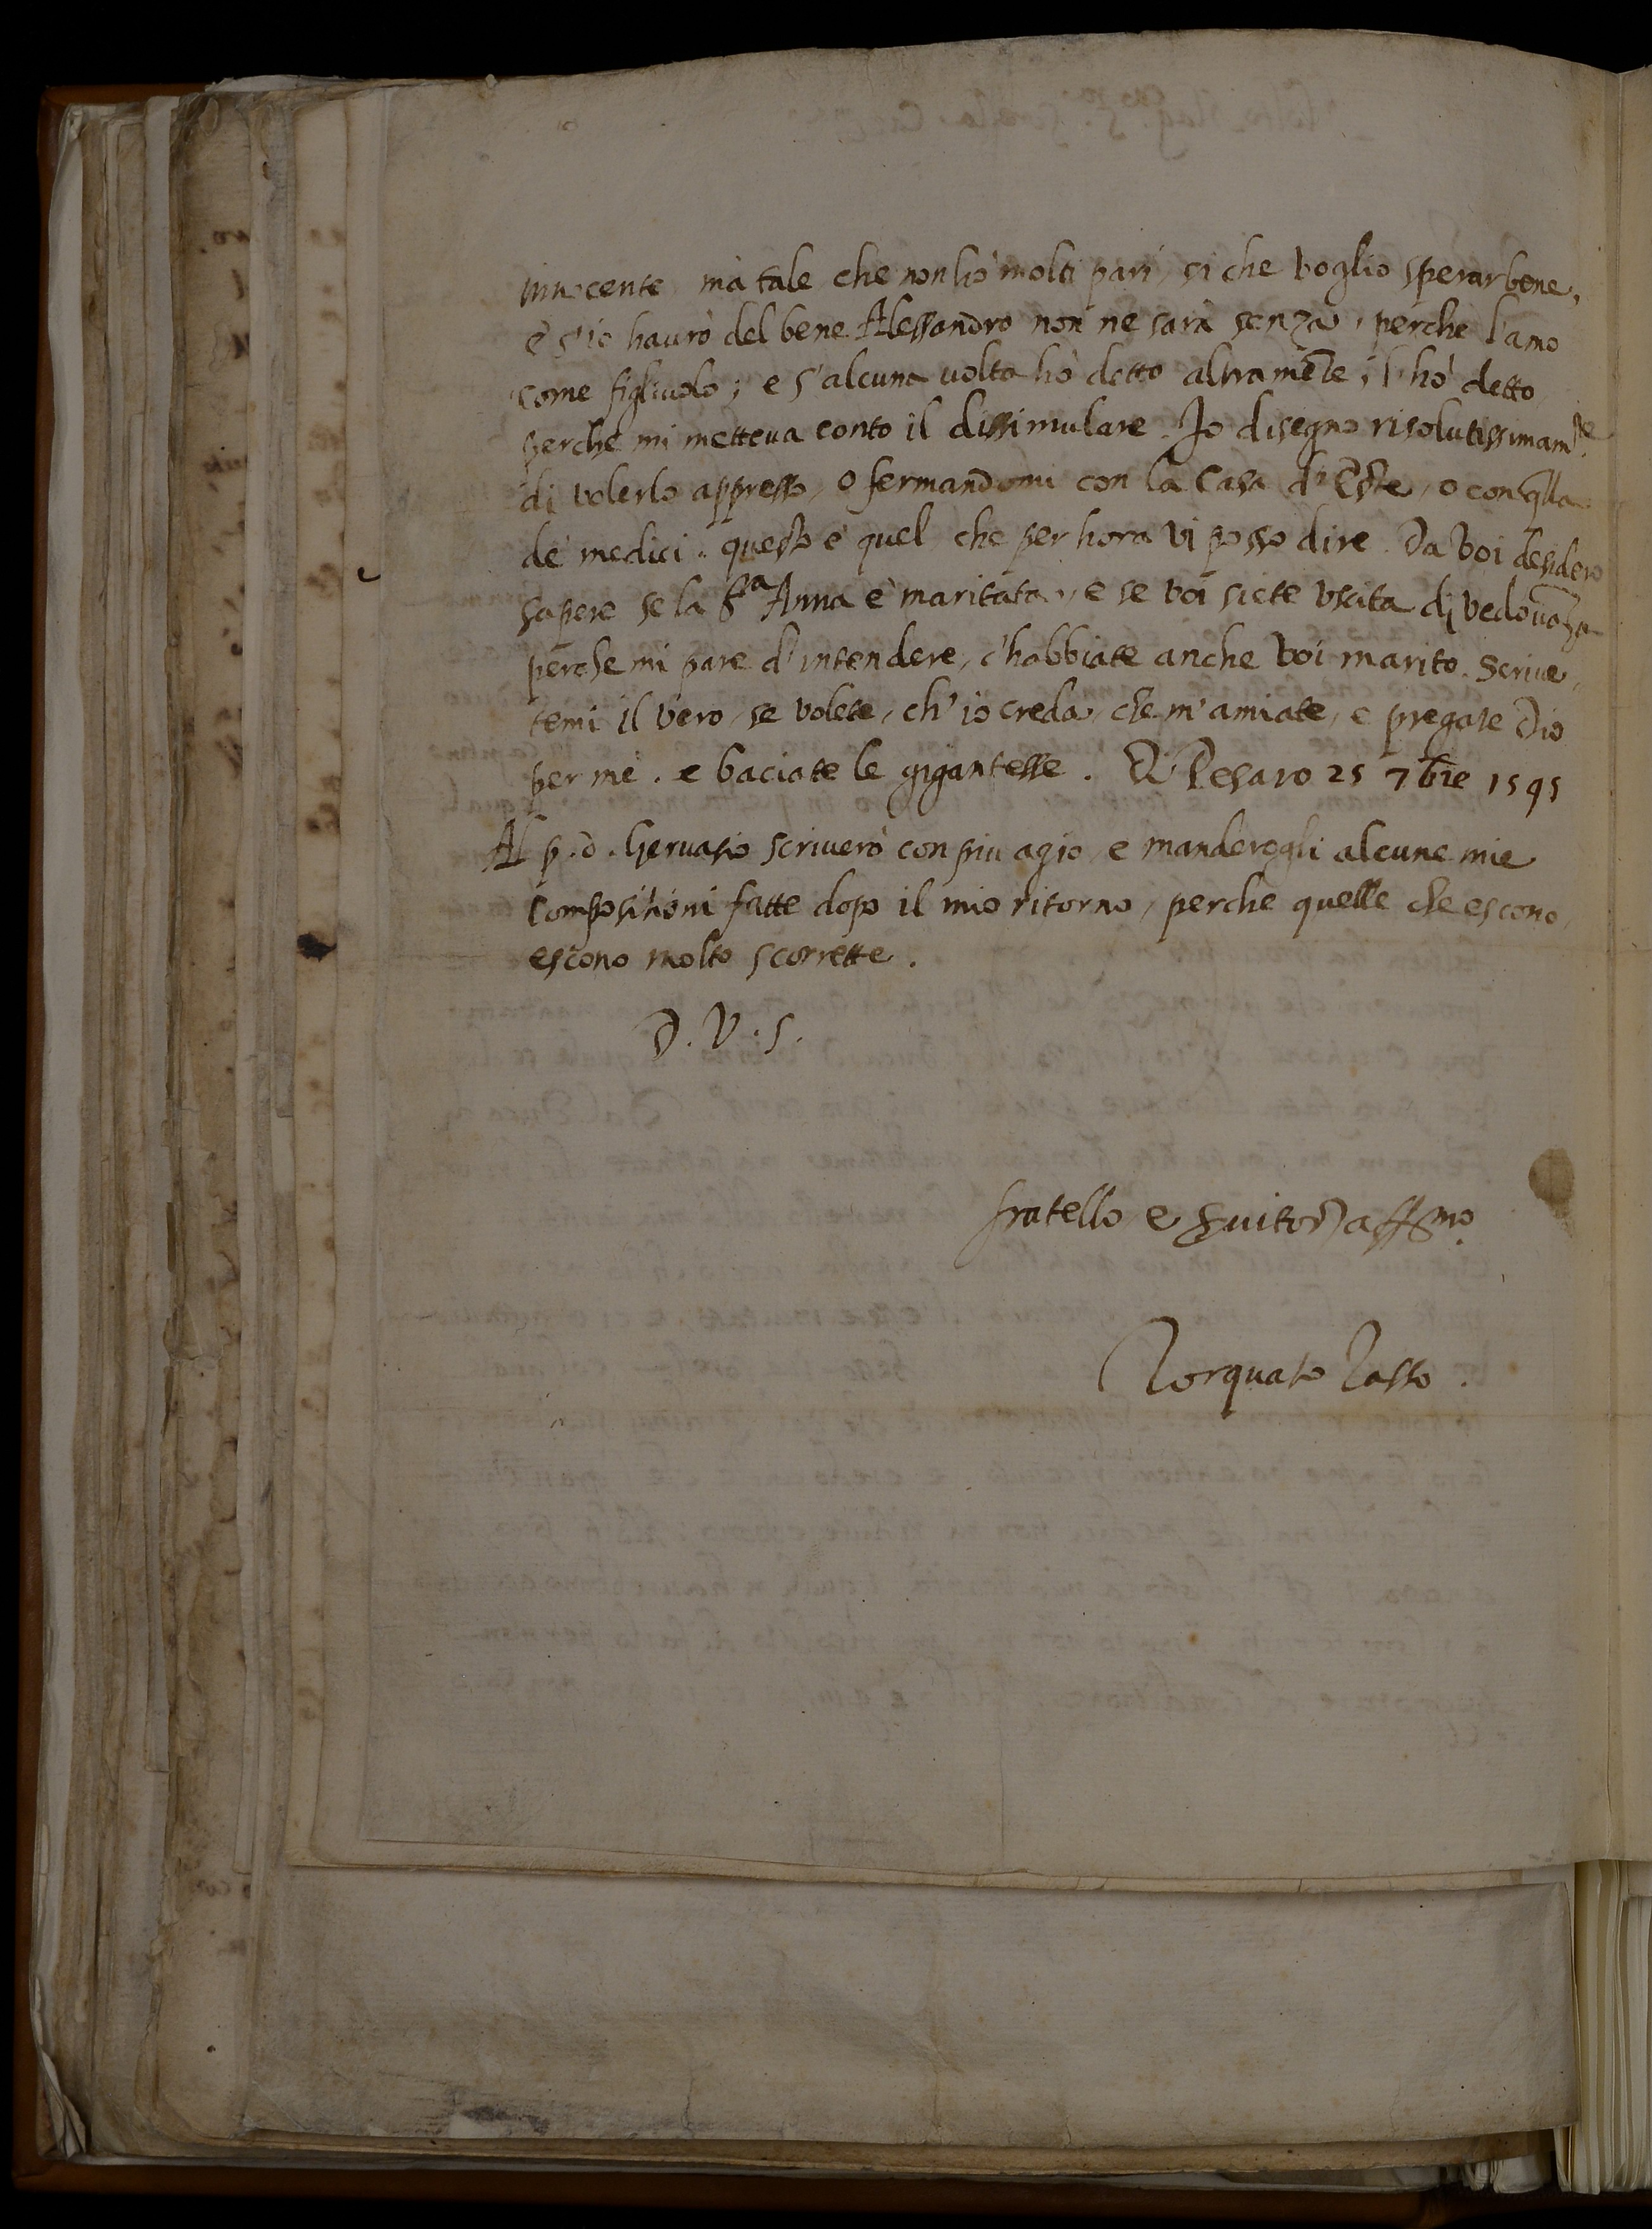 innocente mà tale che non hò molti pari, si che voglio sperar bene,
e s'io haurò del bene Alessandro non ne sarà senza, perche l'amo
come figliuolo; e s'alcuna uolta hò detto altramẽte, l'hò detto
perche mi metteua conto il dissimulare. Io disegno risolutissimam.te
di volerlo appresso, o fermandomi con la Casa d'Este, o con q̃lla
de medici. questo è quel che per hora vi posso dire. Da voi desidero
sapere se la S.ra Anna è maritata, e se voi siete vscita di vedouãza
perche mi pare d'intendere, c'habbiate anche voi marito. Scriue,
temi il vero, se volete, ch'io creda, che m'amiate, e pregate Dio
per me. e baciate le gigantesse. Di Pesaro 25 7bre 1595
Al p. d. Geruasio scriuerò con piu agio, e manderogli alcune mie
compositioni fatte dopo il mio ritorno, perche quelle che escono,
escono molto scorrette.
D. V. S.
fratello e s.uitor aff.mo
Torquato Tasso.